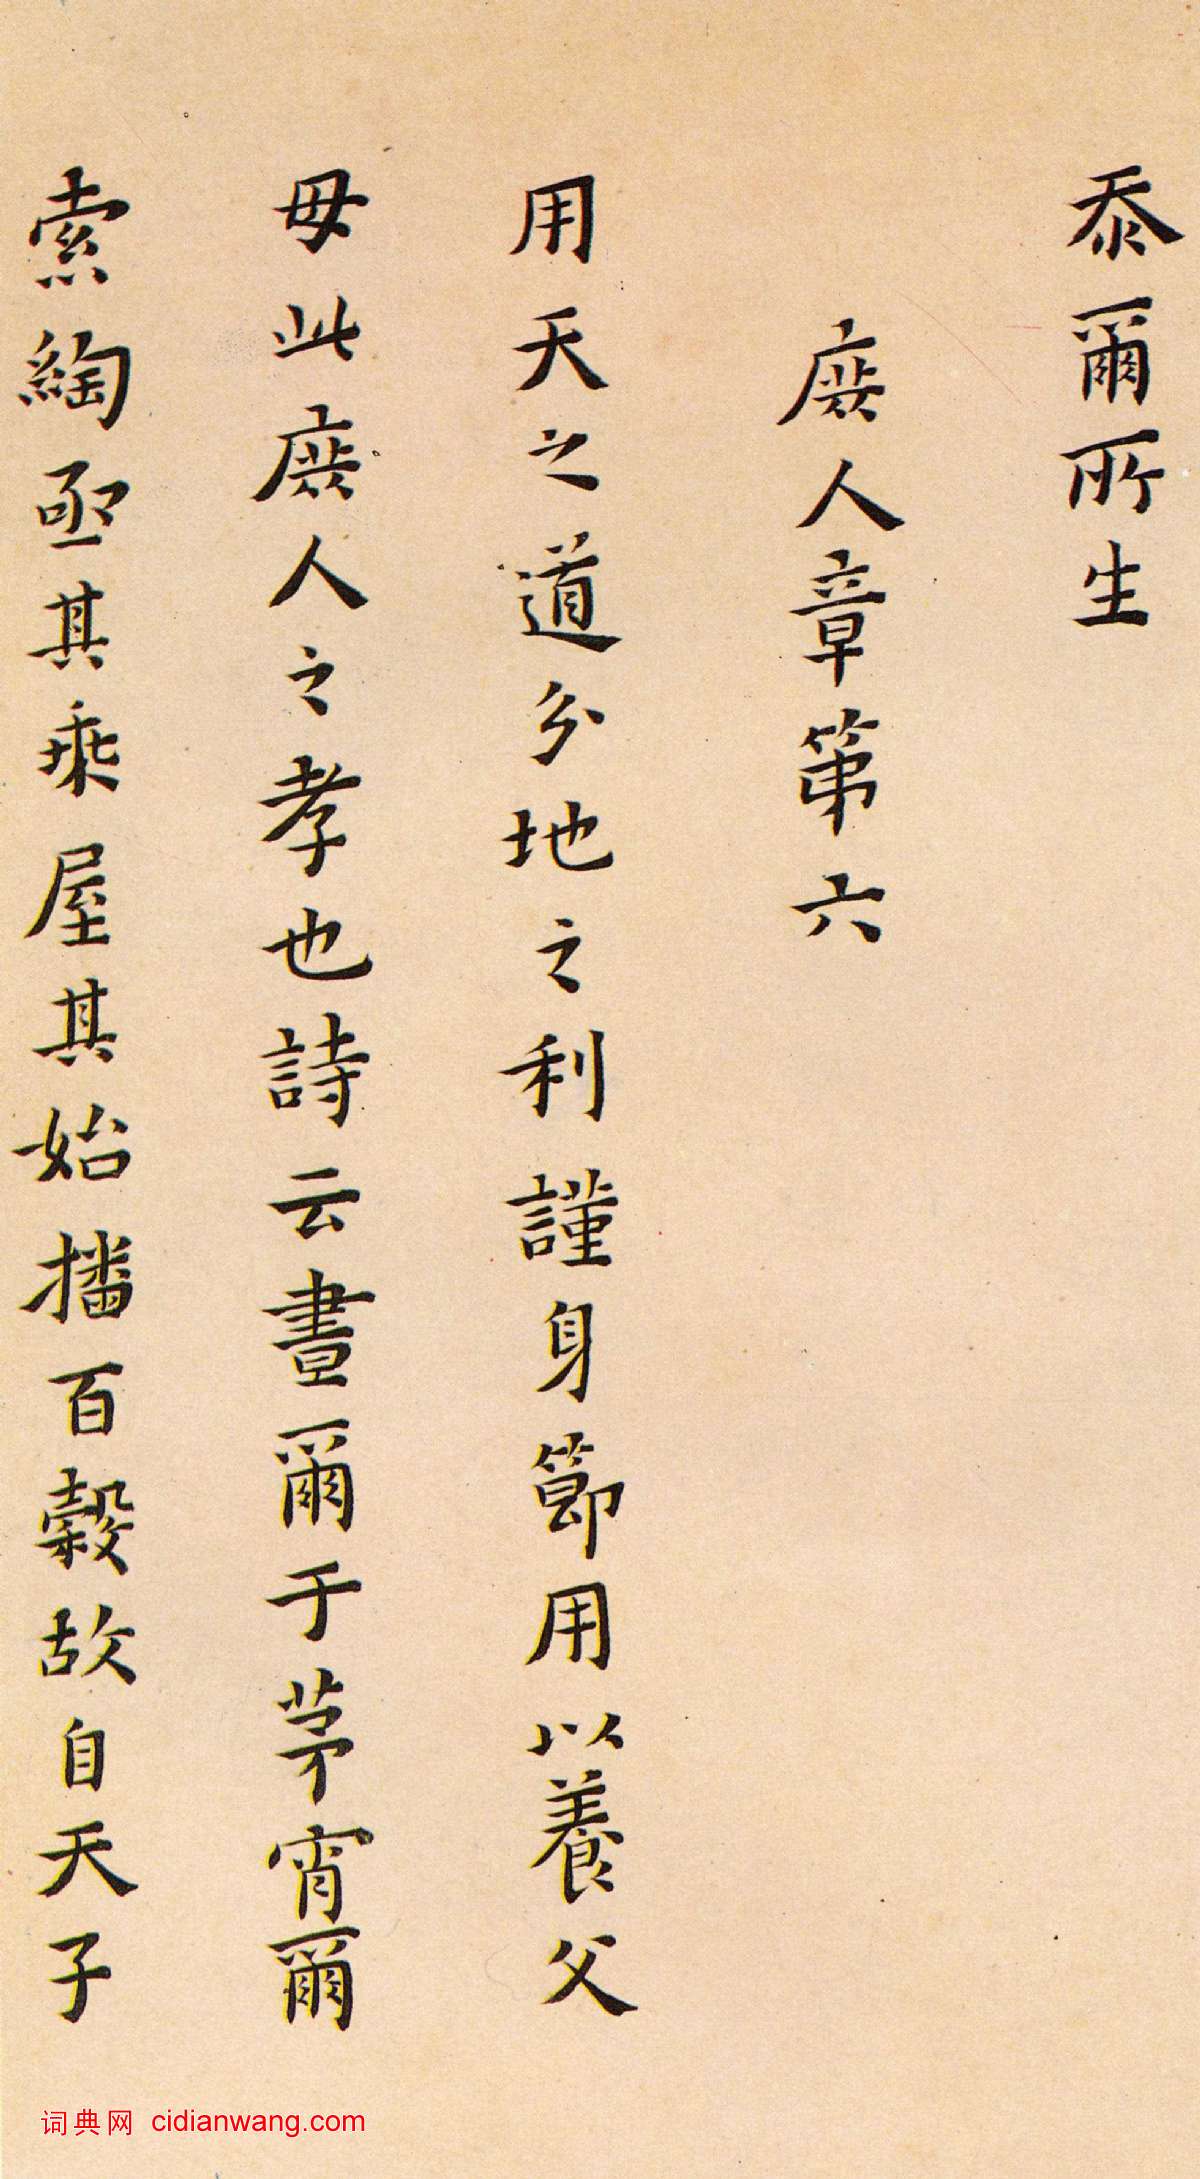 忝爾所生
庻人章第六
用天之道分地之利謹身節用以養父
母此庻人之孝也詩云晝爾于茅宵爾
索綯亟其乘屋其始播百穀故自天子
词典网 cidianwang.com